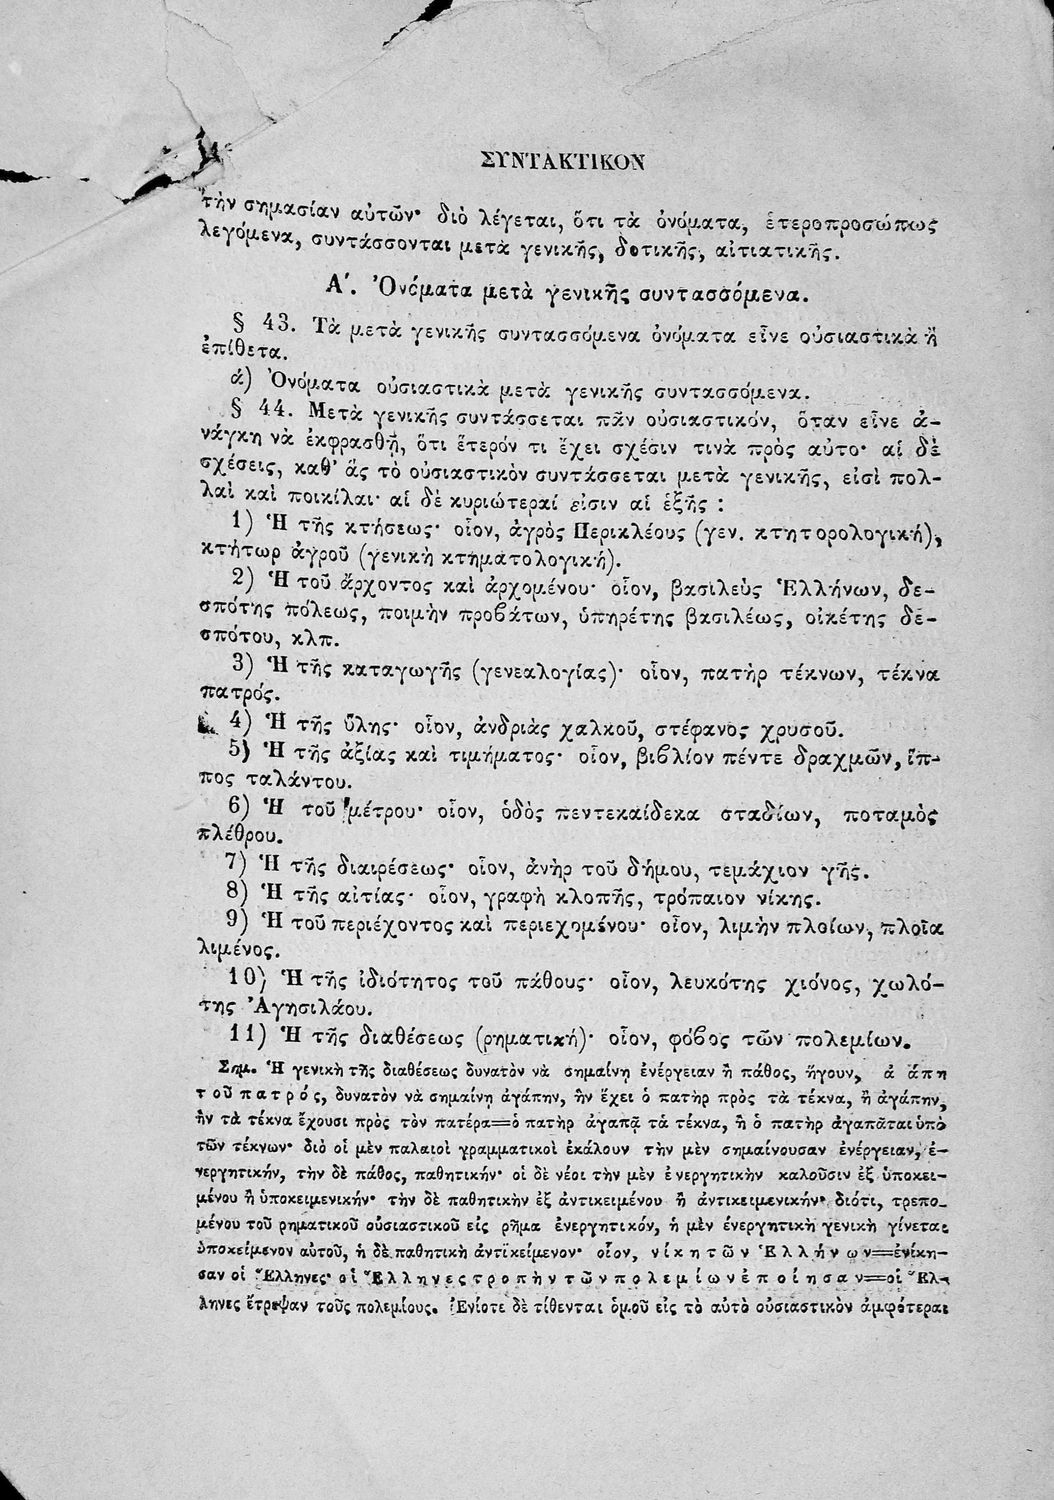 ΣΥΝΤΑΚΤΙΚΟΝ
τὴν σημασίαν αὐτῶν· διὸ λέγεται, ὅτι τὰ ὀνόματα, ἑτεροπροσώπως
λεγόμενα, συντάσσονται μετὰ γενικῆς, δοτικῆς, αἰτιατικῆς.
Α΄. Ὀνόματα μετὰ γενικῆς συντασσόμενα.
§ 43. Τὰ μετὰ γενικῆς συντασσόμενα ὀνόματα εἶνε οὐσιαστικὰ ἢ
ἐπίθετα.
ά) Ὀνόματα οὐσιαστικὰ μετὰ γενικῆς συντασσόμενα.
§ 44. Μετὰ γενικῆς συντάσσεται πᾶν οὐσιαστικόν, ὅταν εἶνε ἀ-
νάγκη νὰ ἐκφρασθῇ, ὅτι ἕτερόν τι ἔχει σχέσιν τινὰ πρὸς αὐτο· αἱ δὲ
σχέσεις, καθ' ἃς τὸ οὐσιαστικὸν συντάσσεται μετὰ γενικῆς, εἰσὶ πολ-
λαὶ καὶ ποικίλαι· αἱ δὲ κυριώτεραί εἰσιν αἱ ἑξῆς :
1) Ἡ τῆς κτήσεως· οἷον, ἀγρὸς Περικλέους (γεν. κτητορολογική),
κτήτωρ ἀγροῦ (γενικὴ κτηματολογική).
2) Ἡ τοῦ ἄρχοντος καὶ ἀρχομένου· οἷον, βασιλεὺς Ἑλλήνων, δε-
σπότης πόλεως, ποιμὴν προβάτων, ὑπηρέτης βασιλέως, οἰκέτης δε-
σπότου, κλπ.
3) Ἡ τῆς καταγωγῆς (γενεαλογίας)· οἷον, πατὴρ τέκνων, τέκνα
πατρός.
4) Ἡ τῆς ὕλης· οἷον, ἀνδριὰς χαλκοῦ, στέφανος χρυσοῦ.
5) Ἡ τῆς ἀξίας καὶ τιμήματος· οἷον, βιβλίον πέντε δραχμῶν, ἵπ-
πος ταλάντου.
6) Ἡ τοῦ μέτρου· οἷον, ὁδὸς πεντεκαίδεκα σταδίων, ποταμὸς
πλέθρου.
7) Ἡ τῆς διαιρέσεως· οἷον, ἀνὴρ τοῦ δήμου, τεμάχιον γῆς.
8) Ἡ τῆς αἰτίας· οἷον, γραφὴ κλοπῆς, τρόπαιον νίκης.
9) Ἡ τοῦ περιέχοντος καὶ περιεχομένου· οἷον, λιμὴν πλοίων, πλοῖα
λιμένος.
10) Ἡ τῆς ἰδιότητος τοῦ πάθους· οἷον, λευκότης χιόνος, χωλό-
της Ἀγησιλάου.
11) Ἡ τῆς διαθέσεως (ῥηματική)· οἷον, φόβος τῶν πολεμίων.
Σημ. Ἡ γενικὴ τῆς διαθέσεως δυνατὸν νὰ σημαίνῃ ἐνέργειαν ἢ πάθος, ἤγουν, ἀ άπη
τοῦ πατρός, δυνατὸν νὰ σημαίνῃ ἀγάπην, ἣν ἔχει ὁ πατὴρ πρὸς τὰ τέκνα, ἢ ἀγάπην,
ἣν τὰ τέκνα ἔχουσι πρὸς τὸν πατέρα=ὁ πατὴρ ἀγαπᾷ τὰ τέκνα, ἢ ὁ πατὴρ ἀγαπᾶται ὑπὸ
τῶν τέκνων· διὸ οἱ μὲν παλαιοὶ γραμματικοὶ ἐκάλουν τὴν μὲν σημαίνουσαν ἐνέργειαν, ἐ-
νεργητικήν, τὴν δὲ πάθος, παθητικήν· οἱ δὲ νέοι τὴν μὲν ἐνεργητικὴν καλοῦσιν ἐξ ὑποκει-
μένου ἢ ὑποκειμενικήν· τὴν δὲ παθητικὴν ἐξ ἀντικειμένου ἢ ἀντικειμενικήν· διότι, τρεπο-
μένου τοῦ ῥηματικοῦ οὐσιαστικοῦ εἰς ῥῆμα ἐνεργητικόν, ἡ μὲν ἐνεργητικὴ γενικὴ γίνεται
ὑποκείμενον αὐτοῦ, ἡ δὲ παθητικὴ ἀντικείμενον· οἷον, νίκη τῶν Ἑλλήνων=ἐνίκη-
σαν οἱ Ἕλληνες· οἱ Ἕλληνες τροπὴν τῶν πολεμίων ἐποίησαν=οἱ Ἕλ-
ληνες ἔτρεψαν τοὺς πολεμίους. Ἐνίοτε δὲ τίθενται ὁμοῦ εἰς τὸ αὐτὸ οὐσιαστικὸν ἀμφότεραι